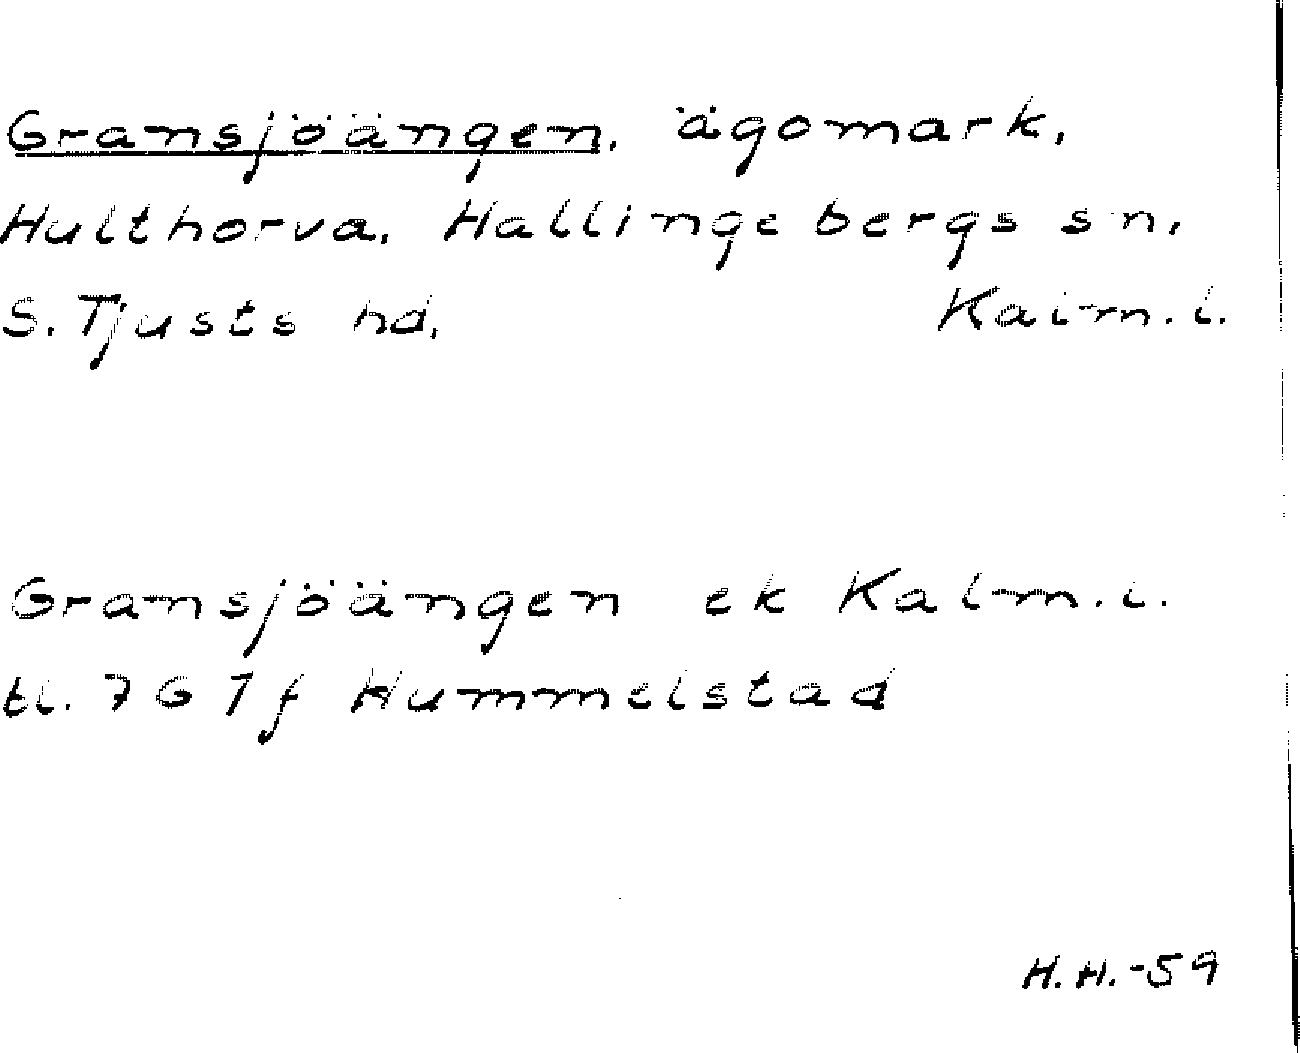 Gransjöängen, ägomark,
Hulthorva, Hallingebergs sn,
S. Tjusts hd, Kalm. l.
Gransjöängen ek Kalm. l.
bl. 7G 7f Hummelstad
H.H.-59